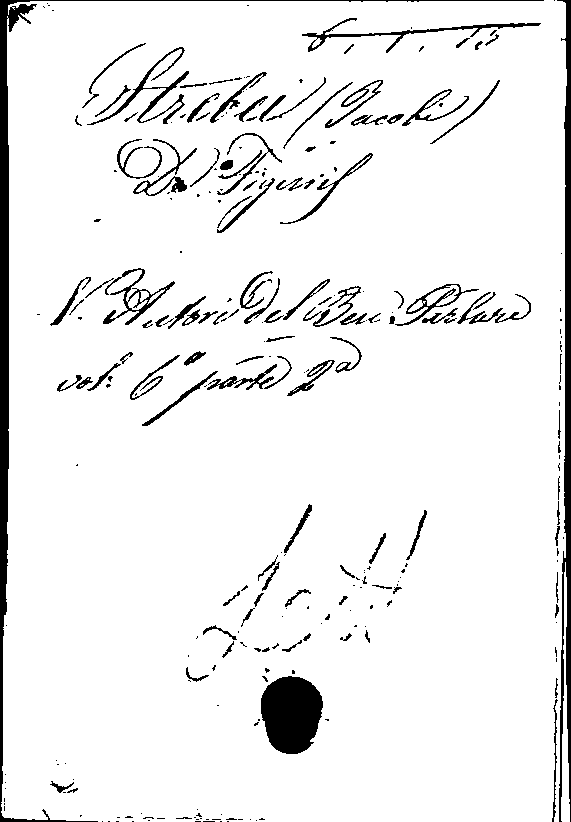 6. 1. 13
Strebei (Jacobi)
De Figuris
V. Autori del Ben Parlare
vol. 6º parte 2ª